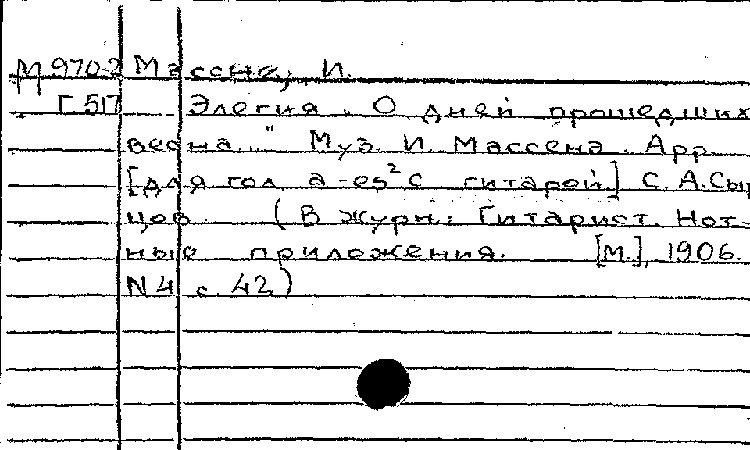 М 970-2 Массне, И.
Г 517 Элегия. О дней прошедших
весна..." Муз. И. Массена. Арр.
[для гол. a-es² с гитарой.] С. А. Сыр
цов. (В журн.: Гитарист. Нот-
ные приложения. [М.], 1906.
N4 с. 42)